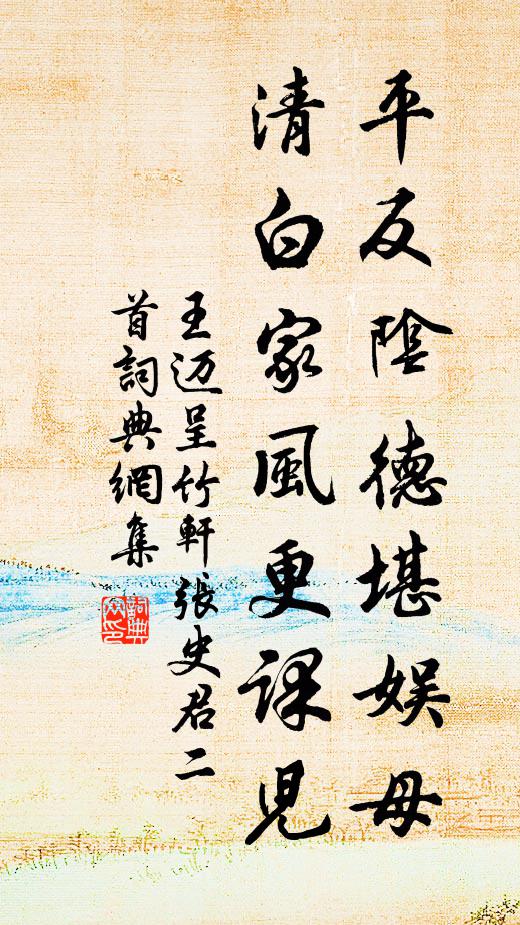 平反陰德堪娱母
清白家風更課兒
王迈呈竹軒張史君二
首詞典網集
詞典